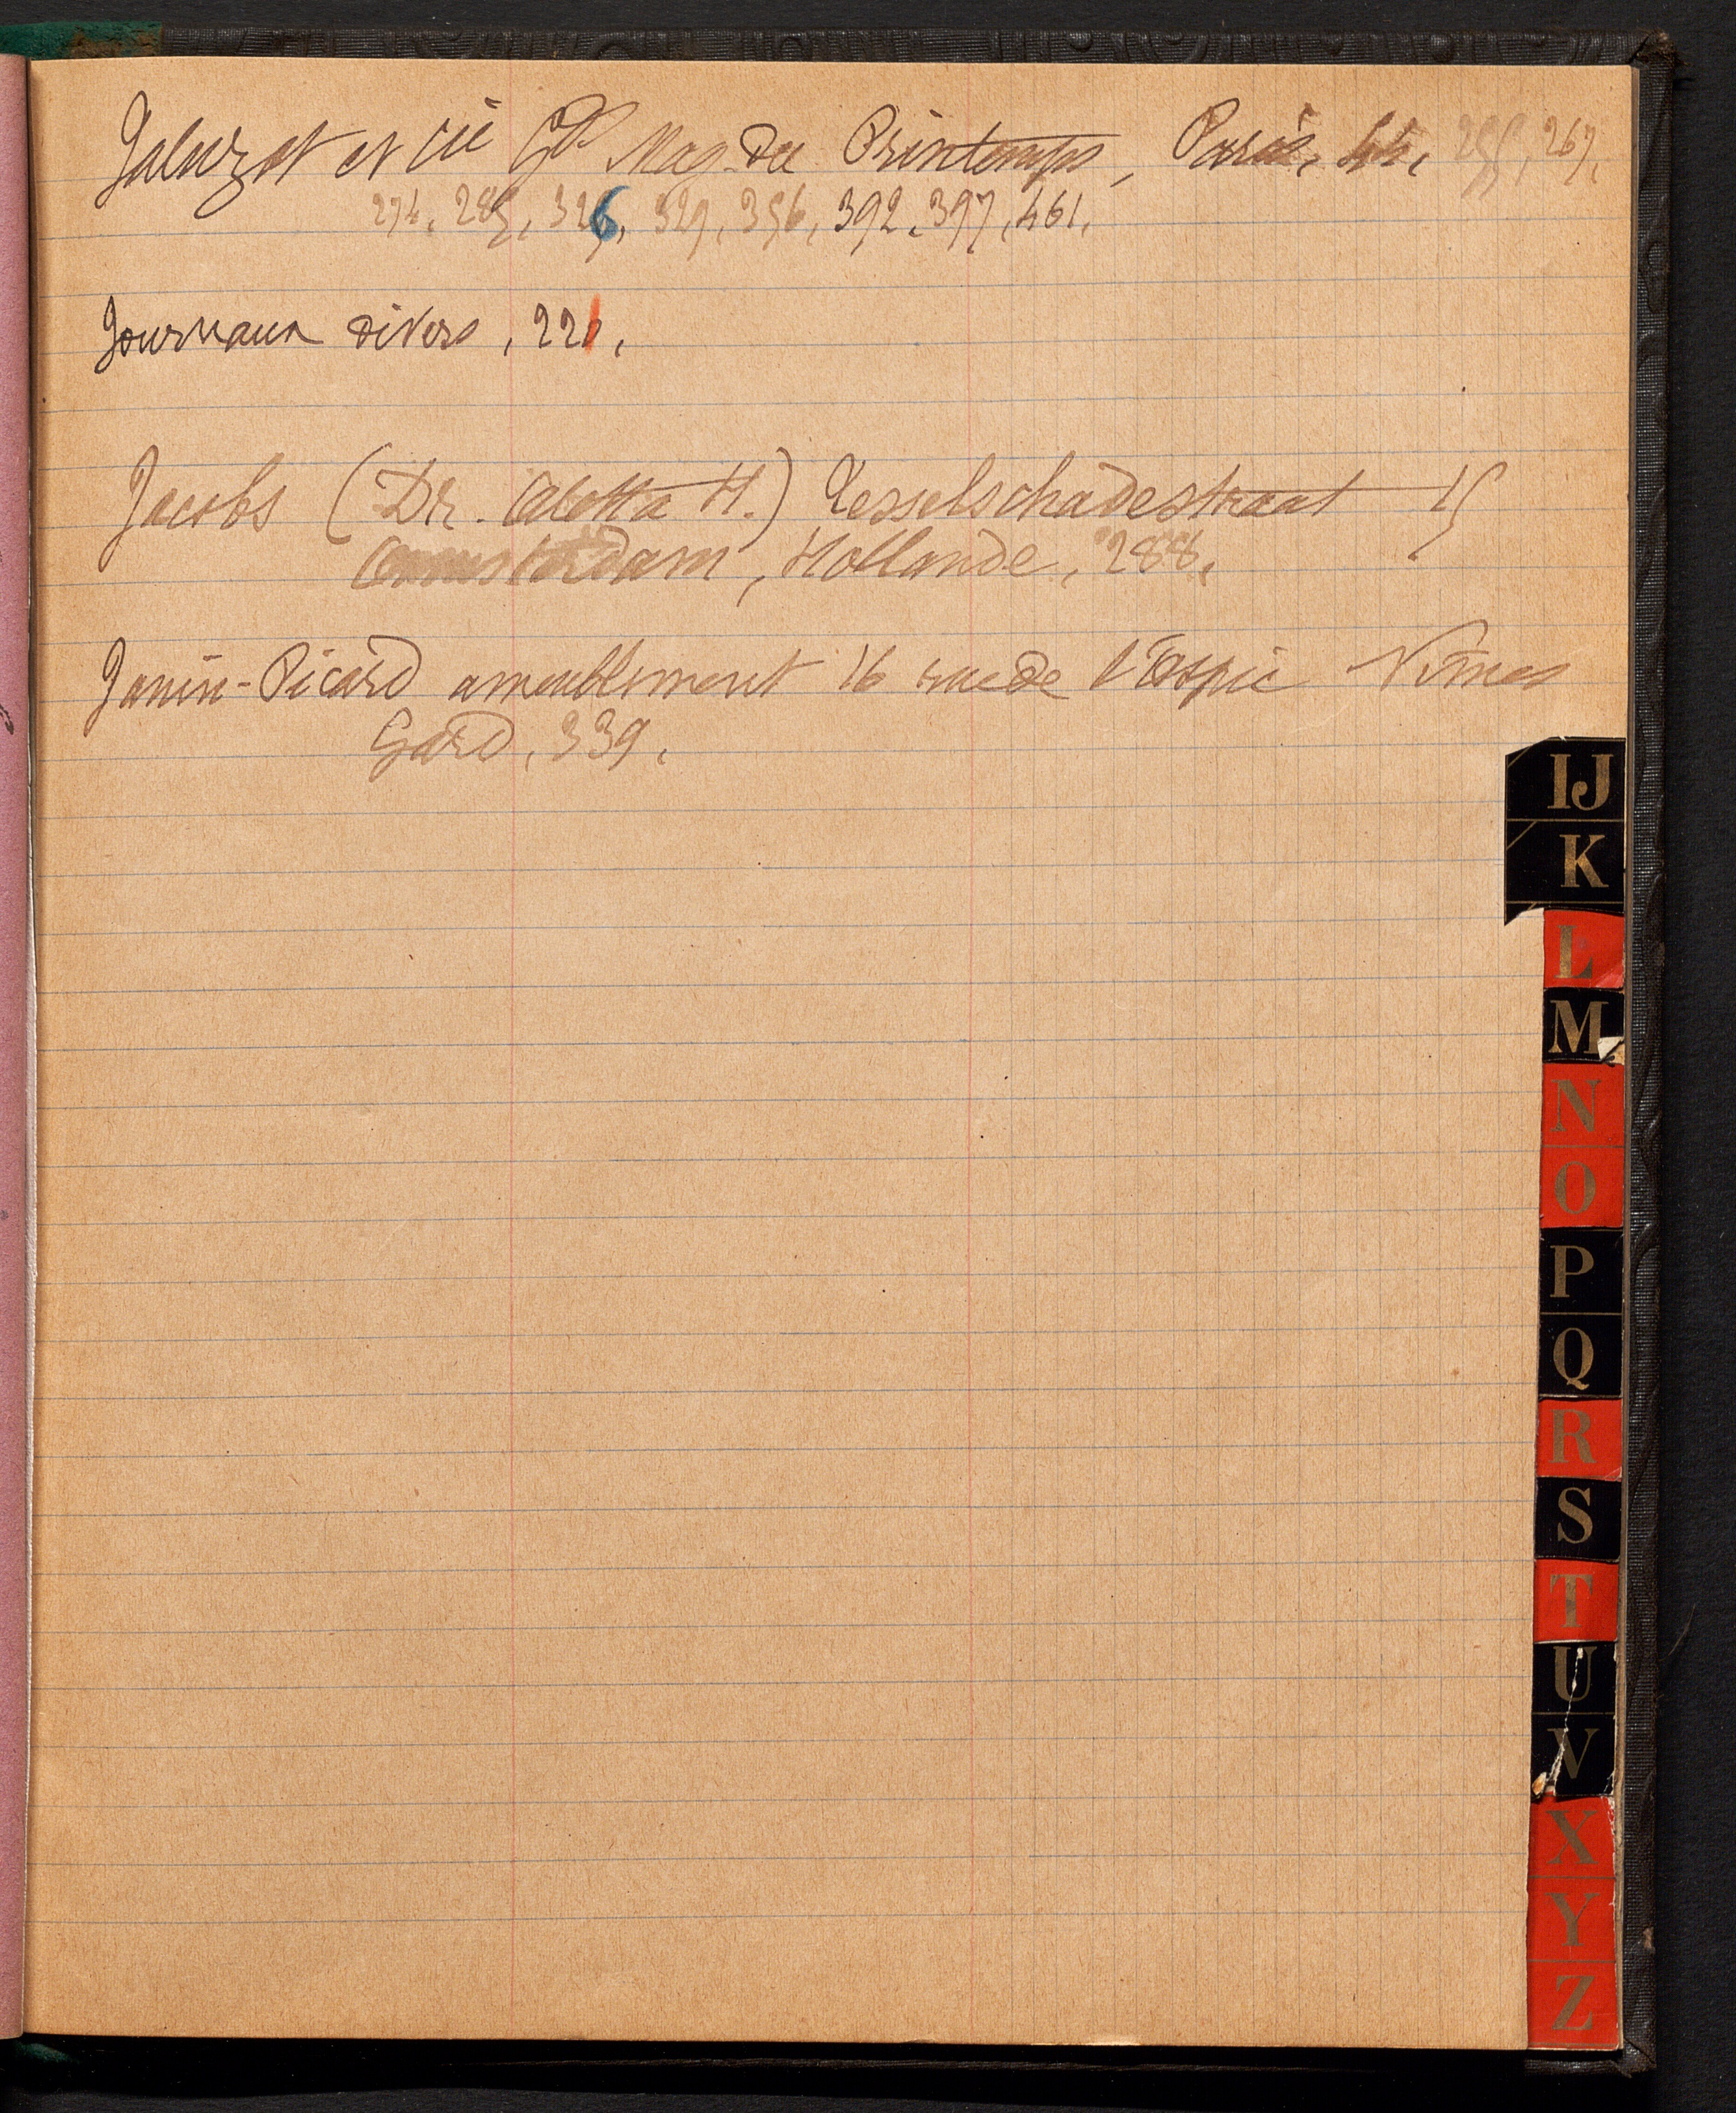 Jaluzot et Cie Gds Mag. du Printemps, Paris, 44, 255, 267,
274, 285, 326, 329, 356, 392, 397, 461.
Journaux divers, 221.
Jacobs (Dr. Aletta H.) Tesselschadestraat 15
Amsterdam, Hollande, 288.
Janin-Picard ameublement 16 rue de l'Aspic Nîmes
Gard, 339.
IJ
K
L
M
N
O
P
Q
R
S
T
U
V
X
Y
Z